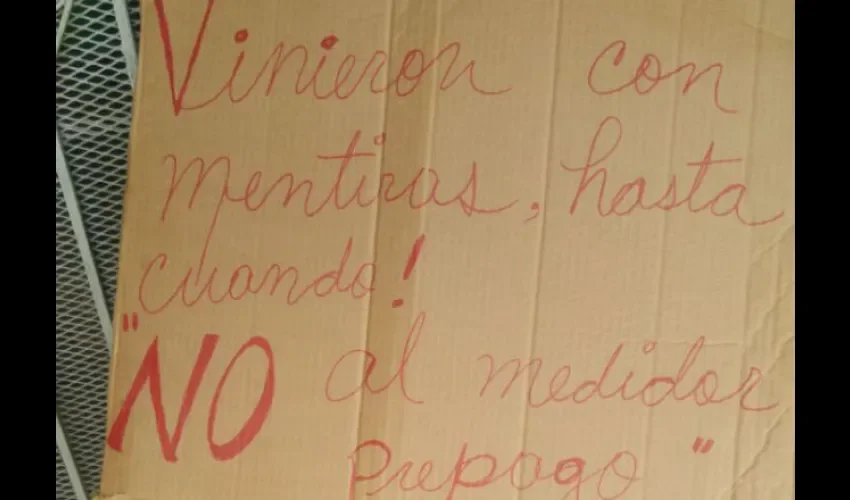 Vinieron con
mentiras, hasta
cuando!
"NO al medidor
prepago"